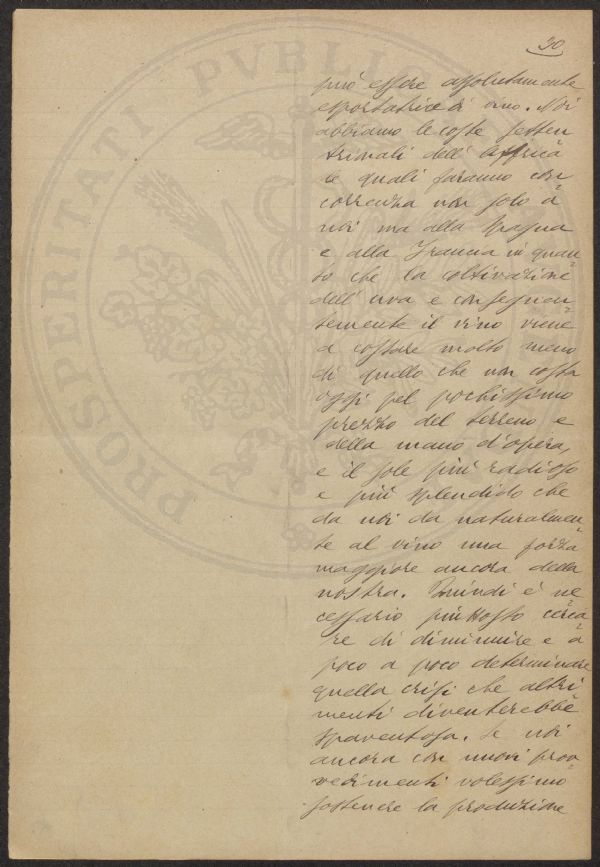 30
PROSPERITATI PVBLIC
può essere assolutamente
esportatrice di vino. Noi
abbiamo le coste setten
trionali dell' Affrica
le quali faranno con
correnza non solo a
noi ma alla Spagna
e alla Francia in quan
to che la coltivazione
dell' uva e conseguen
temente il vino viene
a costare molto meno
di quello che non costa
oggi pel pochissimo
prezzo del terreno e
della mano d'opera,
e il sole più radioso
e più splendido che
da noi da naturalmen
te al vino una forza
maggiore ancora della
nostra. Quindi è ne
cessario piuttosto cerca
re di diminuire e a
poco a poco determinare
quella crisi che altri
menti diventerebbe
spaventosa. Se noi
ancora con nuovi prov
vedimenti volessimo
sostenere la produzione